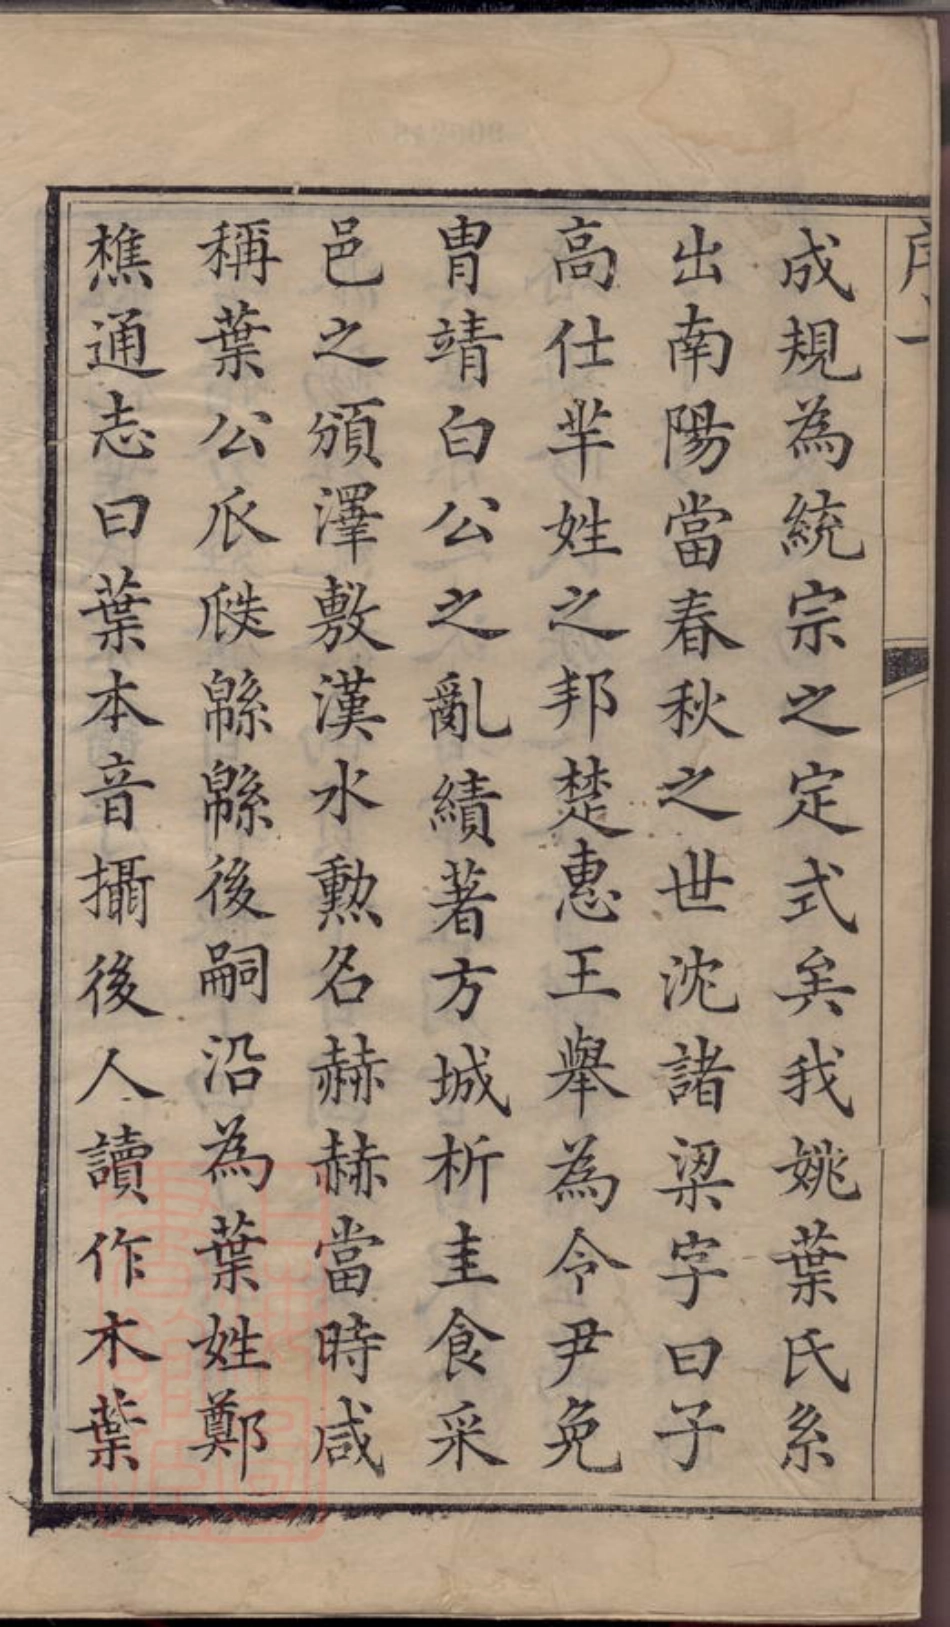 序一
成規為統宗之定式矣我姚葉氏系
出南陽當春秋之世沈諸梁字曰子
高仕芈姓之邦楚惠王舉為令尹免
冑靖白公之亂績著方城析圭食采
邑之頒澤敷漢水勲名赫赫當時咸
稱葉公瓜瓞緜緜後嗣沿為葉姓鄭
樵通志曰葉本音攝後人讀作木葉